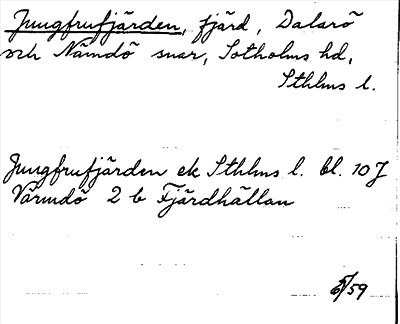 Jungfrufjärden, fjärd, Dalarö
och Nämdö snar, Sotholms hd,
Sthlms l.
Jungfrufjärden ek Sthlms l. bl. 10J
Värmdö 2 b Fjärdhällan
/59